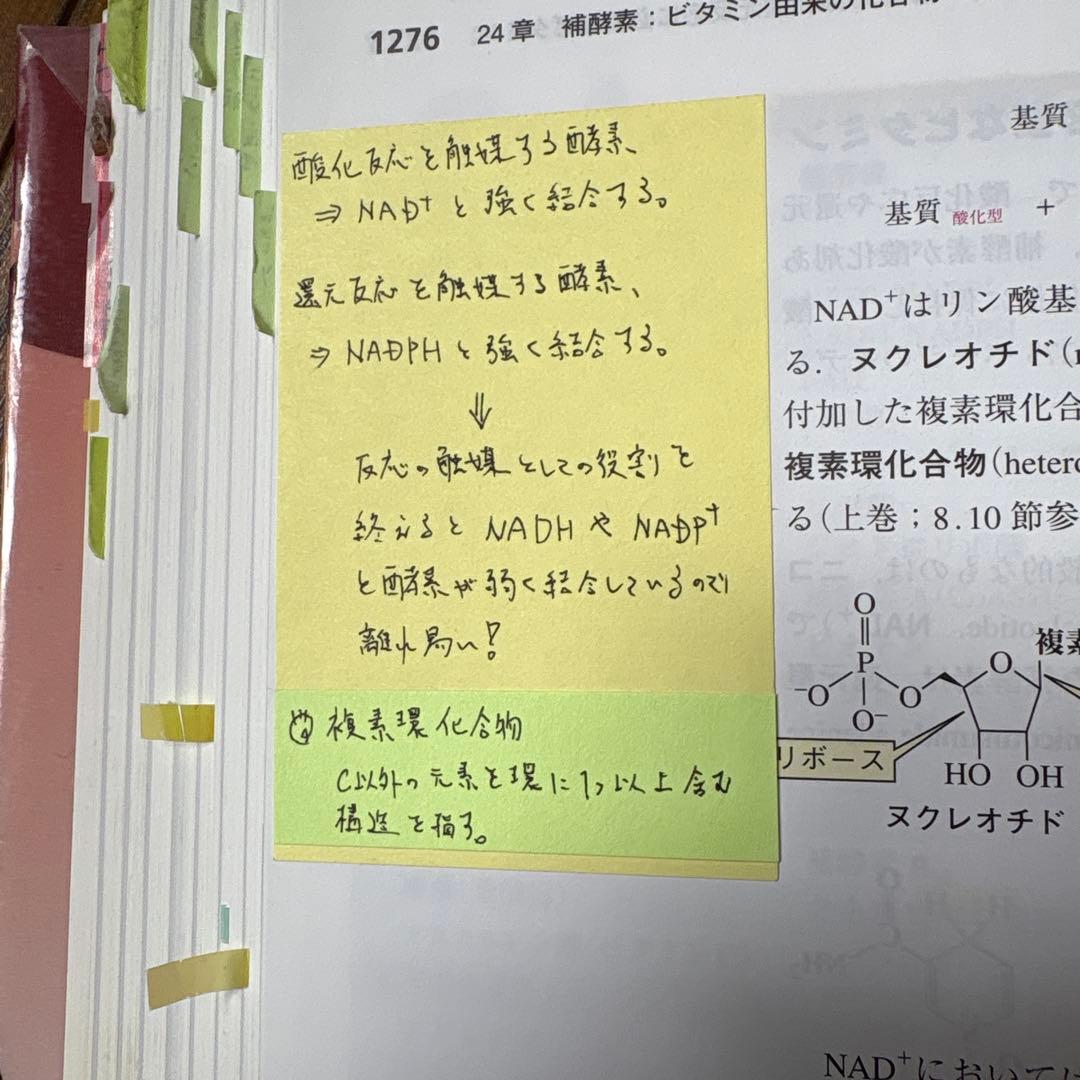 1276 24章 補酵素：ビタミン由来の化合物
酸化反応を触媒する酵素、
⇒ NAD⁺ と強く結合する。
還元反応を触媒する酵素、
⇒ NADPH と強く結合する。
⇓
反応の触媒としての役割を
終えると NADH や NADP⁺
と酵素が弱く結合しているので
離れ易い!
複素環化合物
C以外の元素を環に1つ以上含む
構造を指す。
基質
基質 酸化型 +
NAD⁺はリン酸基
る．ヌクレオチド(
付加した複素環化合
複素環化合物(hetero
る(上巻；8.10節参
O
P
⁻O O
O⁻
O
複素
リボース
HO OH
ヌクレオチド
NAD⁺においては